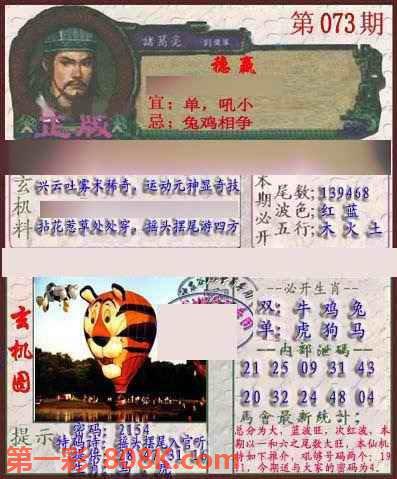 第073期
諸葛亮
稳赢
宜：单，吼小
忌：兔鸡相争
正版
玄机料
兴云吐雾未稀奇，运动元神显奇技
拈花惹草处处穿，摇头摆尾游四方
本期必开
尾数;139468
波色;红 蓝
五行;木 火 土
玄机图
--必开生肖--
双: 牛 鸡 兔
单: 虎 狗 马
内部泄码
21 25 09 31 43
20 32 24 48 04
馬會最新统计;
总分为大，蓝波旺，次红波，本
期以一和六之尾数大旺，本仙机
1，今期道与大家的密码为4.
提示
密码: 2154
特码诗: 摇头摆尾入官听
第一彩:808K.com